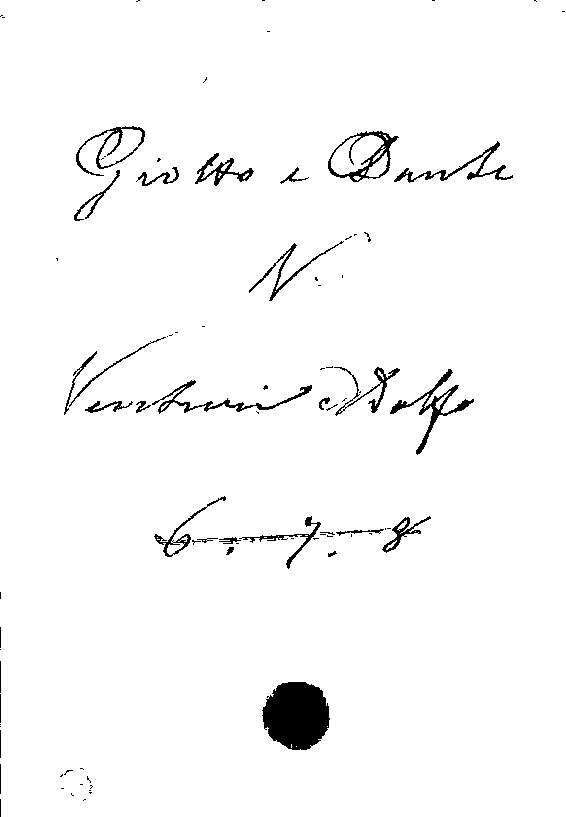 Giotto e Dante
V.
Venturi Adolfo
6. 7. 8